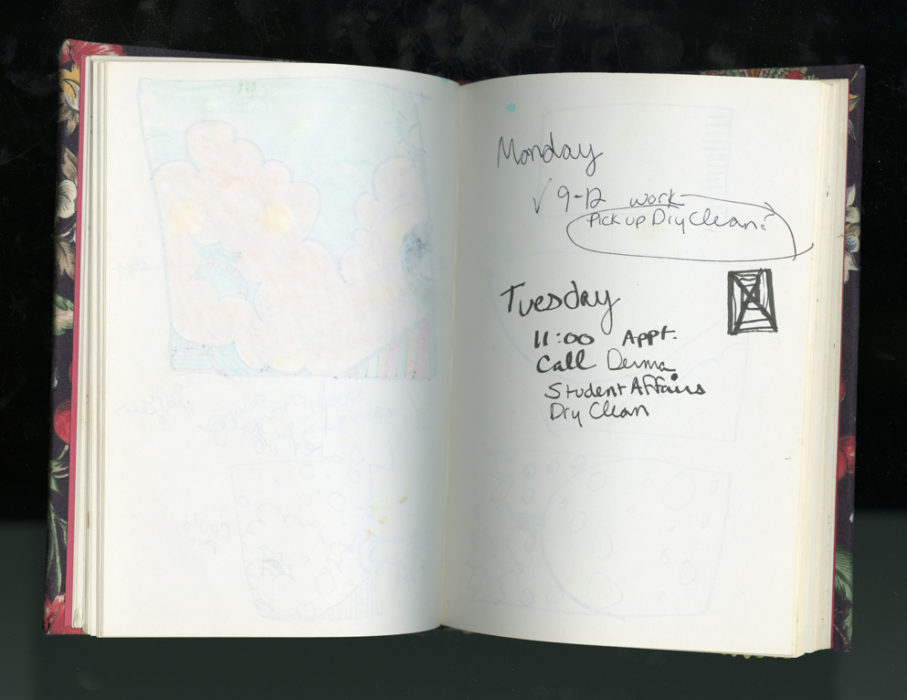 Monday
✓ 9-12 work
Pick up Dry Clean?
Tuesday
11:00 Appt.
Call Derma
Student Affairs
Dry Clean